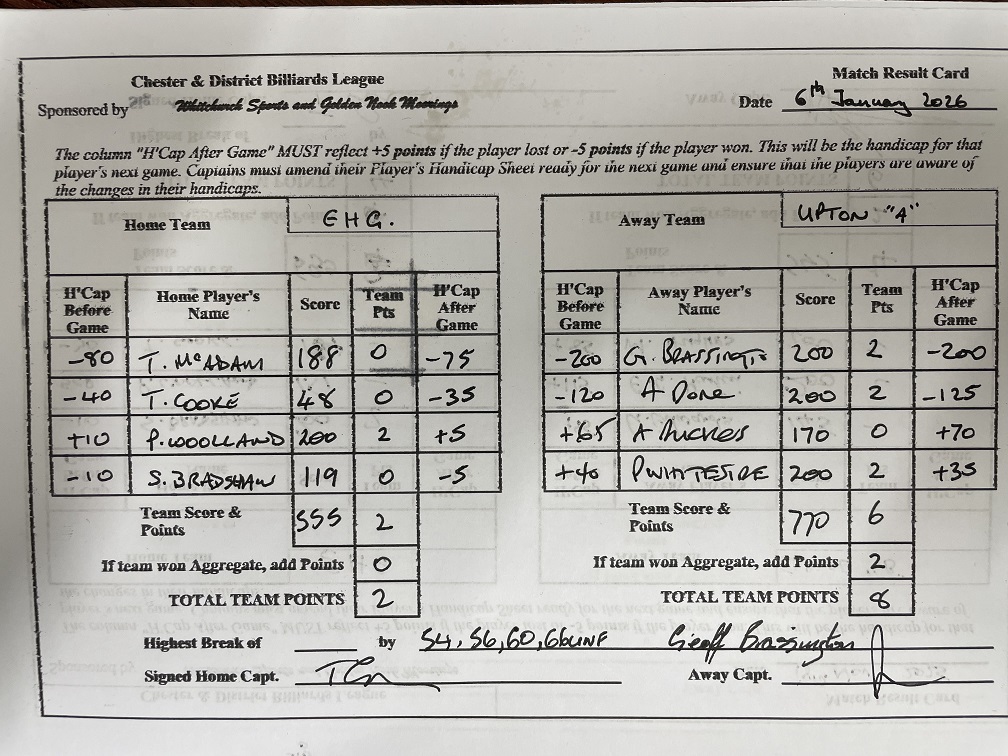 Chester & District Billiards League
Match Result Card
Sponsored by Whitchurch Sports and Golden Nook Moorings
Date 6th January 2026
The column "H'Cap After Game" MUST reflect +5 points if the player lost or -5 points if the player won. This will be the handicap for that
player's next game. Captains must amend their Player's Handicap Sheet ready for the next game and ensure that the players are aware of
the changes in their handicaps.
Home Team EHG.
H'Cap Before Game Home Player's Name Score Team Pts H'Cap After Game
-80 T. McADAM 188 0 -75
-40 T. COOKE 48 0 -35
+10 P. WOOLLAND 200 2 +5
-10 S. BRADSHAW 119 0 -5
Team Score & Points 555 2
If team won Aggregate, add Points 0
TOTAL TEAM POINTS 2
Away Team UPTON "A"
H'Cap Before Game Away Player's Name Score Team Pts H'Cap After Game
-200 G. BRASSINGTON 200 2 -200
-120 A DONE 200 2 -125
+65 A 170 0 +70
+40 P WHITESIDE 200 2 +35
Team Score & Points 770 6
If team won Aggregate, add Points 2
TOTAL TEAM POINTS 8
Highest Break of by 54, 56, 60, 66UNF Geoff Brassington
Signed Home Capt.
Away Capt.